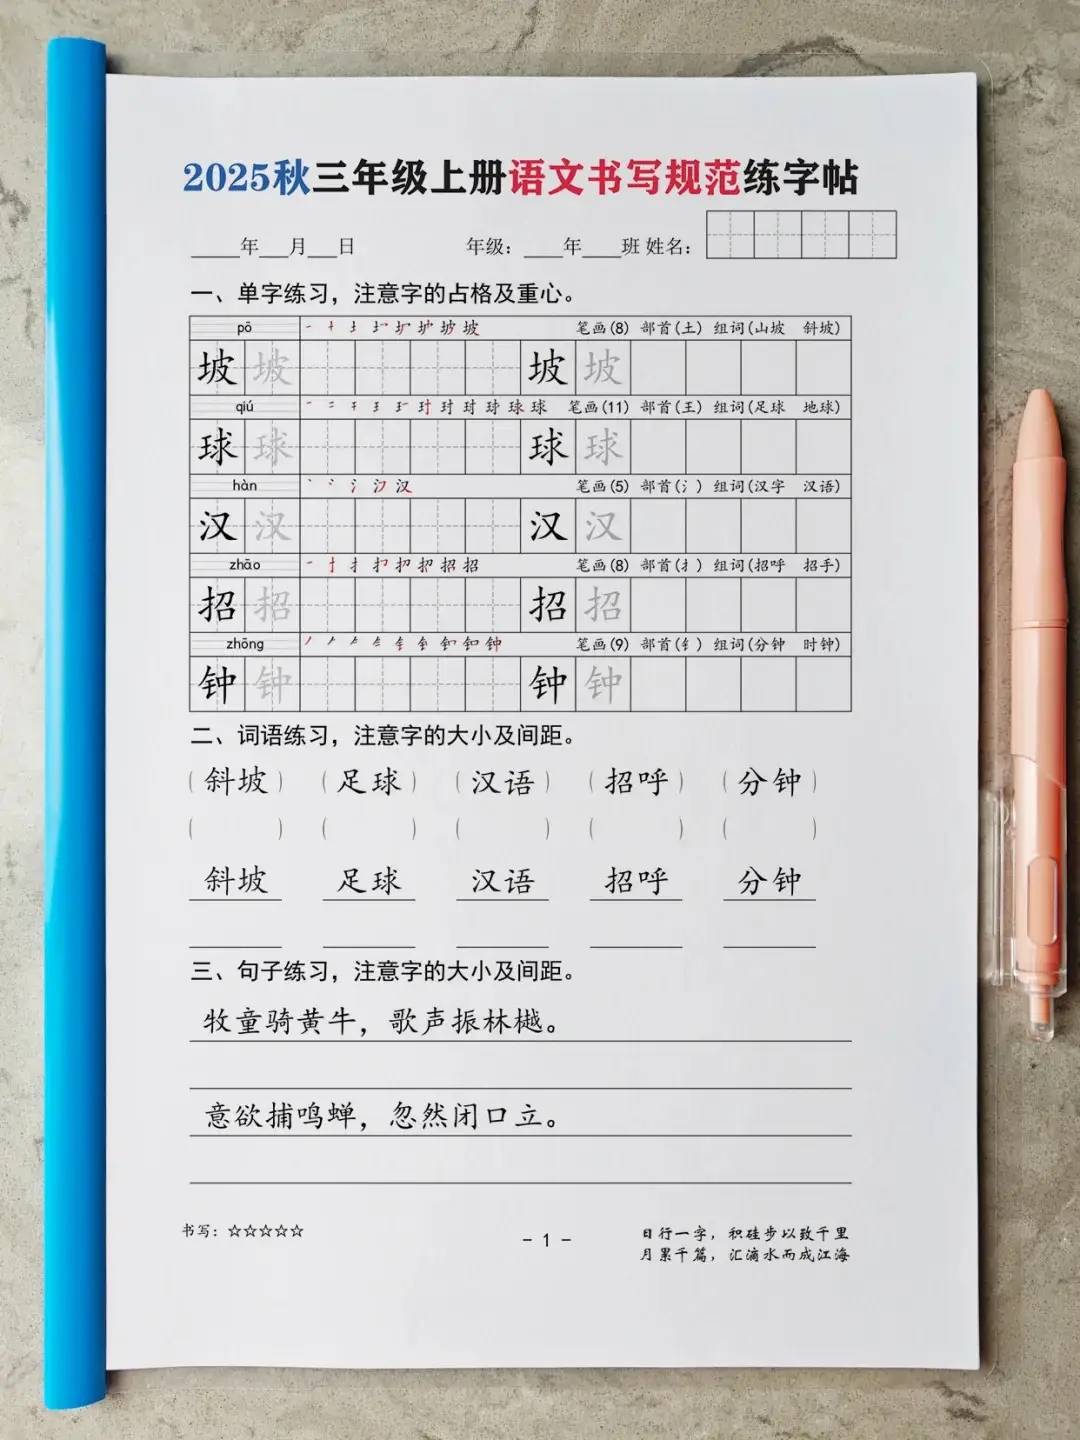 2025秋三年级上册语文书写规范练字帖
____年___月___日 年级：____年____班 姓名：
一、单字练习，注意字的占格及重心。
pō 笔画(8) 部首(土) 组词(山坡 斜坡)
坡 坡 坡 坡
qiú 球 笔画(11) 部首(王) 组词(足球 地球)
球 球 球 球
hàn 汉 笔画(5) 部首(氵) 组词(汉字 汉语)
汉 汉 汉 汉
zhāo 招 笔画(8) 部首(扌) 组词(招呼 招手)
招 招 招 招
zhōng 钟 笔画(9) 部首(钅) 组词(分钟 时钟)
钟 钟 钟 钟
二、词语练习，注意字的大小及间距。
(斜坡) (足球) (汉语) (招呼) (分钟)
( ) ( ) ( ) ( ) ( )
斜坡 足球 汉语 招呼 分钟
三、句子练习，注意字的大小及间距。
牧童骑黄牛，歌声振林樾。
意欲捕鸣蝉，忽然闭口立。
书写：☆☆☆☆☆
- 1 -
日行一字，积硅步以致千里
月累千篇，汇滴水而成江海